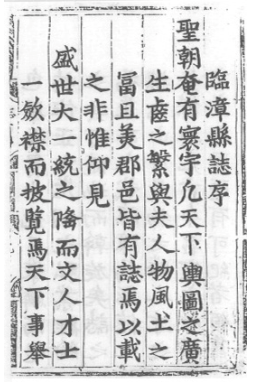 臨漳縣誌序
聖朝奄有寰宇凡天下輿圖之廣
生齒之繁與夫人物風土之
冨且美郡邑皆有誌焉以載
之非惟仰見
盛世大一統之隆而文人才士
一歛襟而披覽焉天下事舉